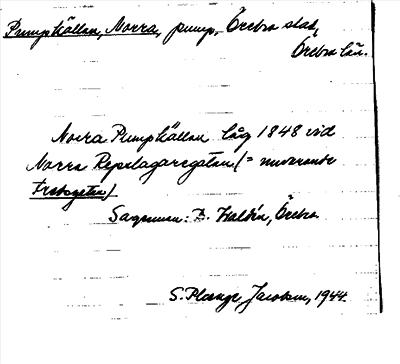 Pumpkällan, Norra, pump, Örebro stad,
Örebro län.
Norra Pumpkällan låg 1848 vid
Norra Repslagaregatan (= nuvarande
Sagesman: B. Waldén, Örebro
S. Plænge Jacobson, 1944.